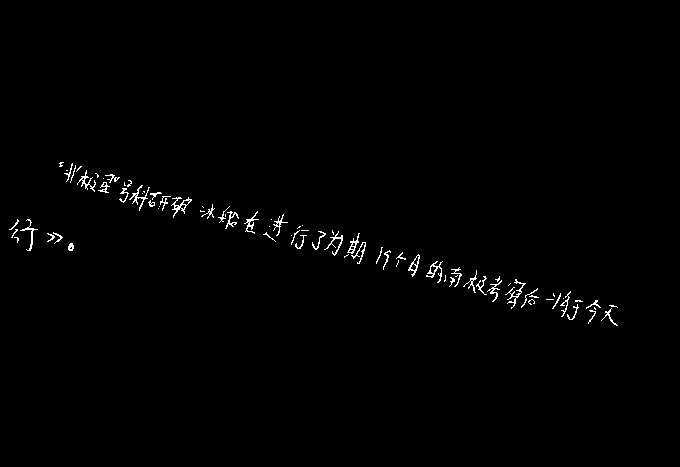 “北极星”号科研破冰船在进行了为期19个月的南极考察后将于今天
行》。